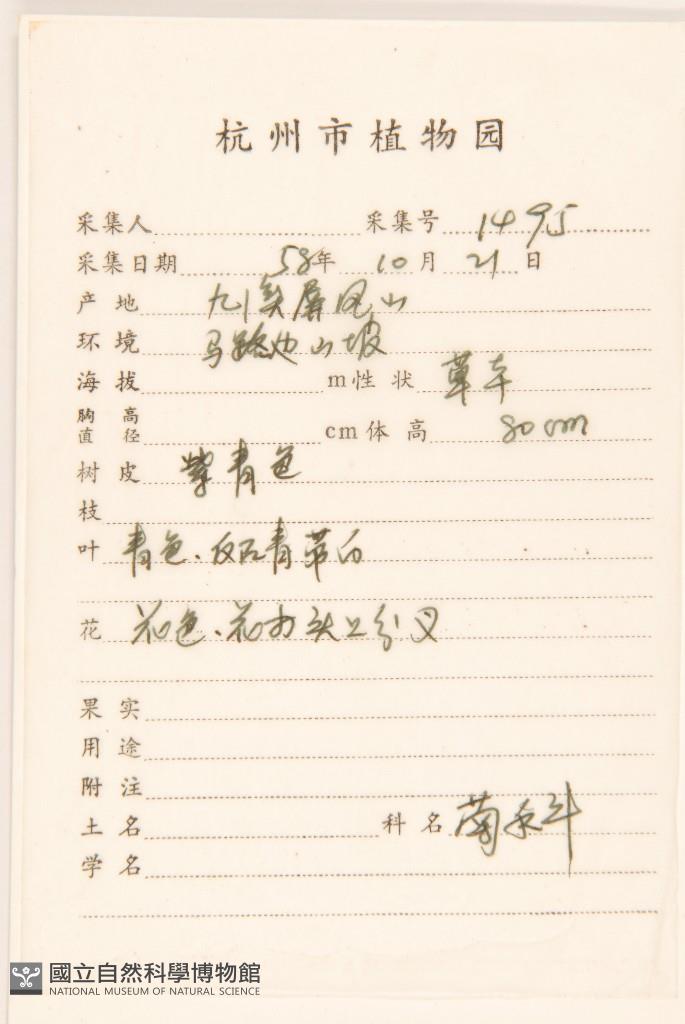 杭州市植物园
采集人 采集号 1495
采集日期 58年 10月 21日
产地 九溪屏风山
环境 马路边山坡
海拔 m性状 草本
胸高直径 cm体高 80cm
树皮 紫青色
枝
叶 青色、反面青带白
花 花色、花
果实
用途
附注
土名 科名 菊科
学名
國立自然科學博物館
NATIONAL MUSEUM OF NATURAL SCIENCE